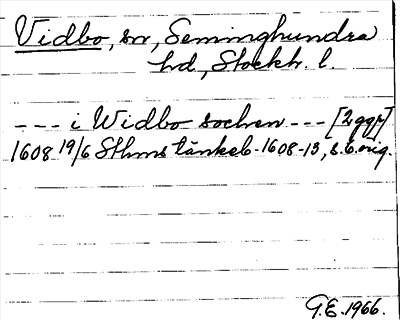 Vidbo, sn, Seminghundra
hd, Stockh. l.
--- i Widbo sochen --- [2 ggr]
1608 19/6 Sthms tänkeb. 1608-13, s. 6. orig.
G.E. 1966.